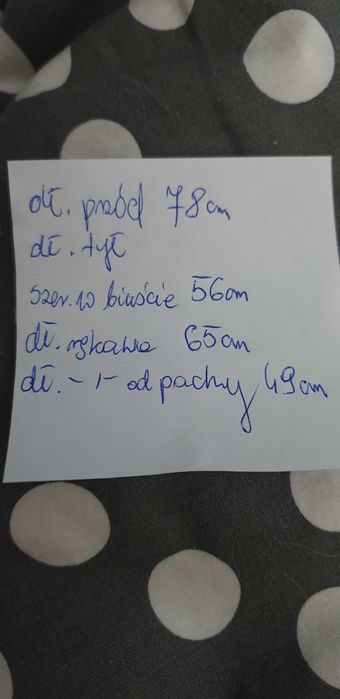 dł. przód 78cm
dł. tył
szer. w biuście 56cm
dł. rękawa 65cm
dł. -||- od pachy 49cm